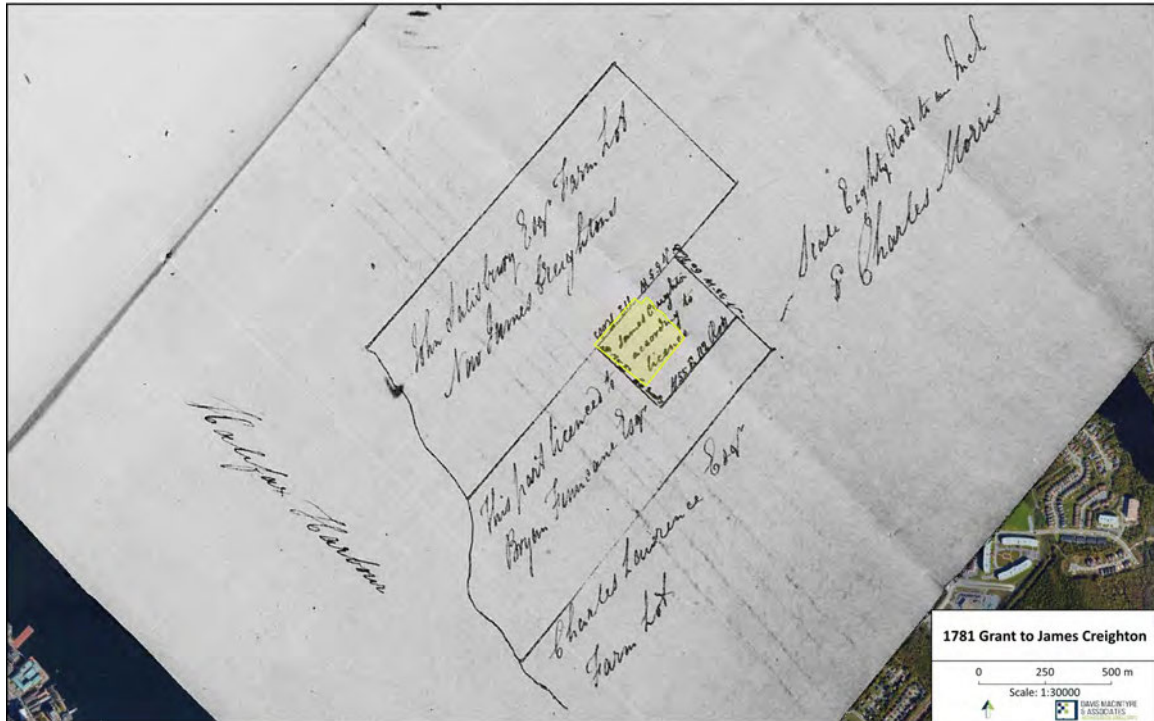 John Salisbury Esqr Farm Lot
Now James Creightons
James Creighton
according to
licence
This part licenced to
Bryan Finucane Esqr
Charles Lawrence Esqr
Farm Lot
Halifax Harbour
Scale Eighty Rods to an Inch
Charles Morris
1781 Grant to James Creighton
0 250 500 m
Scale: 1:30000
DAVIS MACINTYRE
& ASSOCIATES